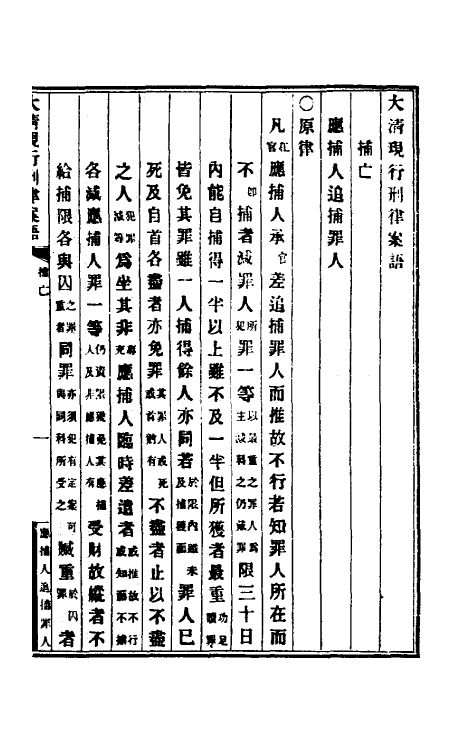 大清現行刑律案語
捕亡
應捕人追捕罪人
○原律
凡在官應捕人承官差追捕罪人而推故不行若知罪人所在而
不即捕者減罪人所犯罪一等以最重之罪人為主減科之仍戴罪限三十日
內能自捕得一半以上雖不及一半但所獲者最重功足贖罪
皆免其罪雖一人捕得餘人亦同若於限內雖未及捕獲而罪人已
死及自首各盡者亦免罪其罪人或死或首猶有不盡者止以不盡
之人犯罪減等為坐其非專充應捕人臨時差遣者或推故不行或知而不捕
各減應捕人罪一等仍責限獲免其應捕人及非應捕人有受財故縱者不
給捕限各與囚之罪重者同罪亦須犯有定案可與同科所受之贓重於囚罪者
大清現行刑律案語
捕亡
一
應捕人追捕罪人